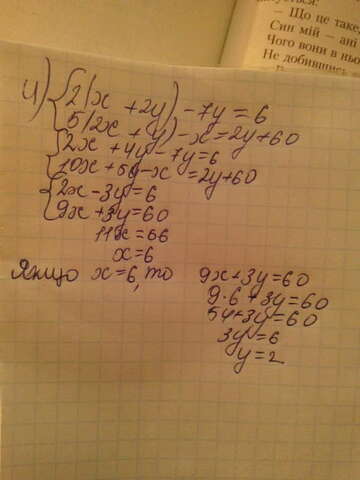 — Що це таке,
Син мій — ані
Чого вони в ньо
Не добившись
4) { 2(x + 2y) - 7y = 6
5(2x + y) - x = 2y + 60
{ 2x + 4y - 7y = 6
10x + 5y - x = 2y + 60
{ 2x - 3y = 6
9x + 3y = 60
11x = 66
x = 6
Якщо x = 6, то 9x + 3y = 60
9·6 + 3y = 60
54 + 3y = 60
3y = 6
y = 2